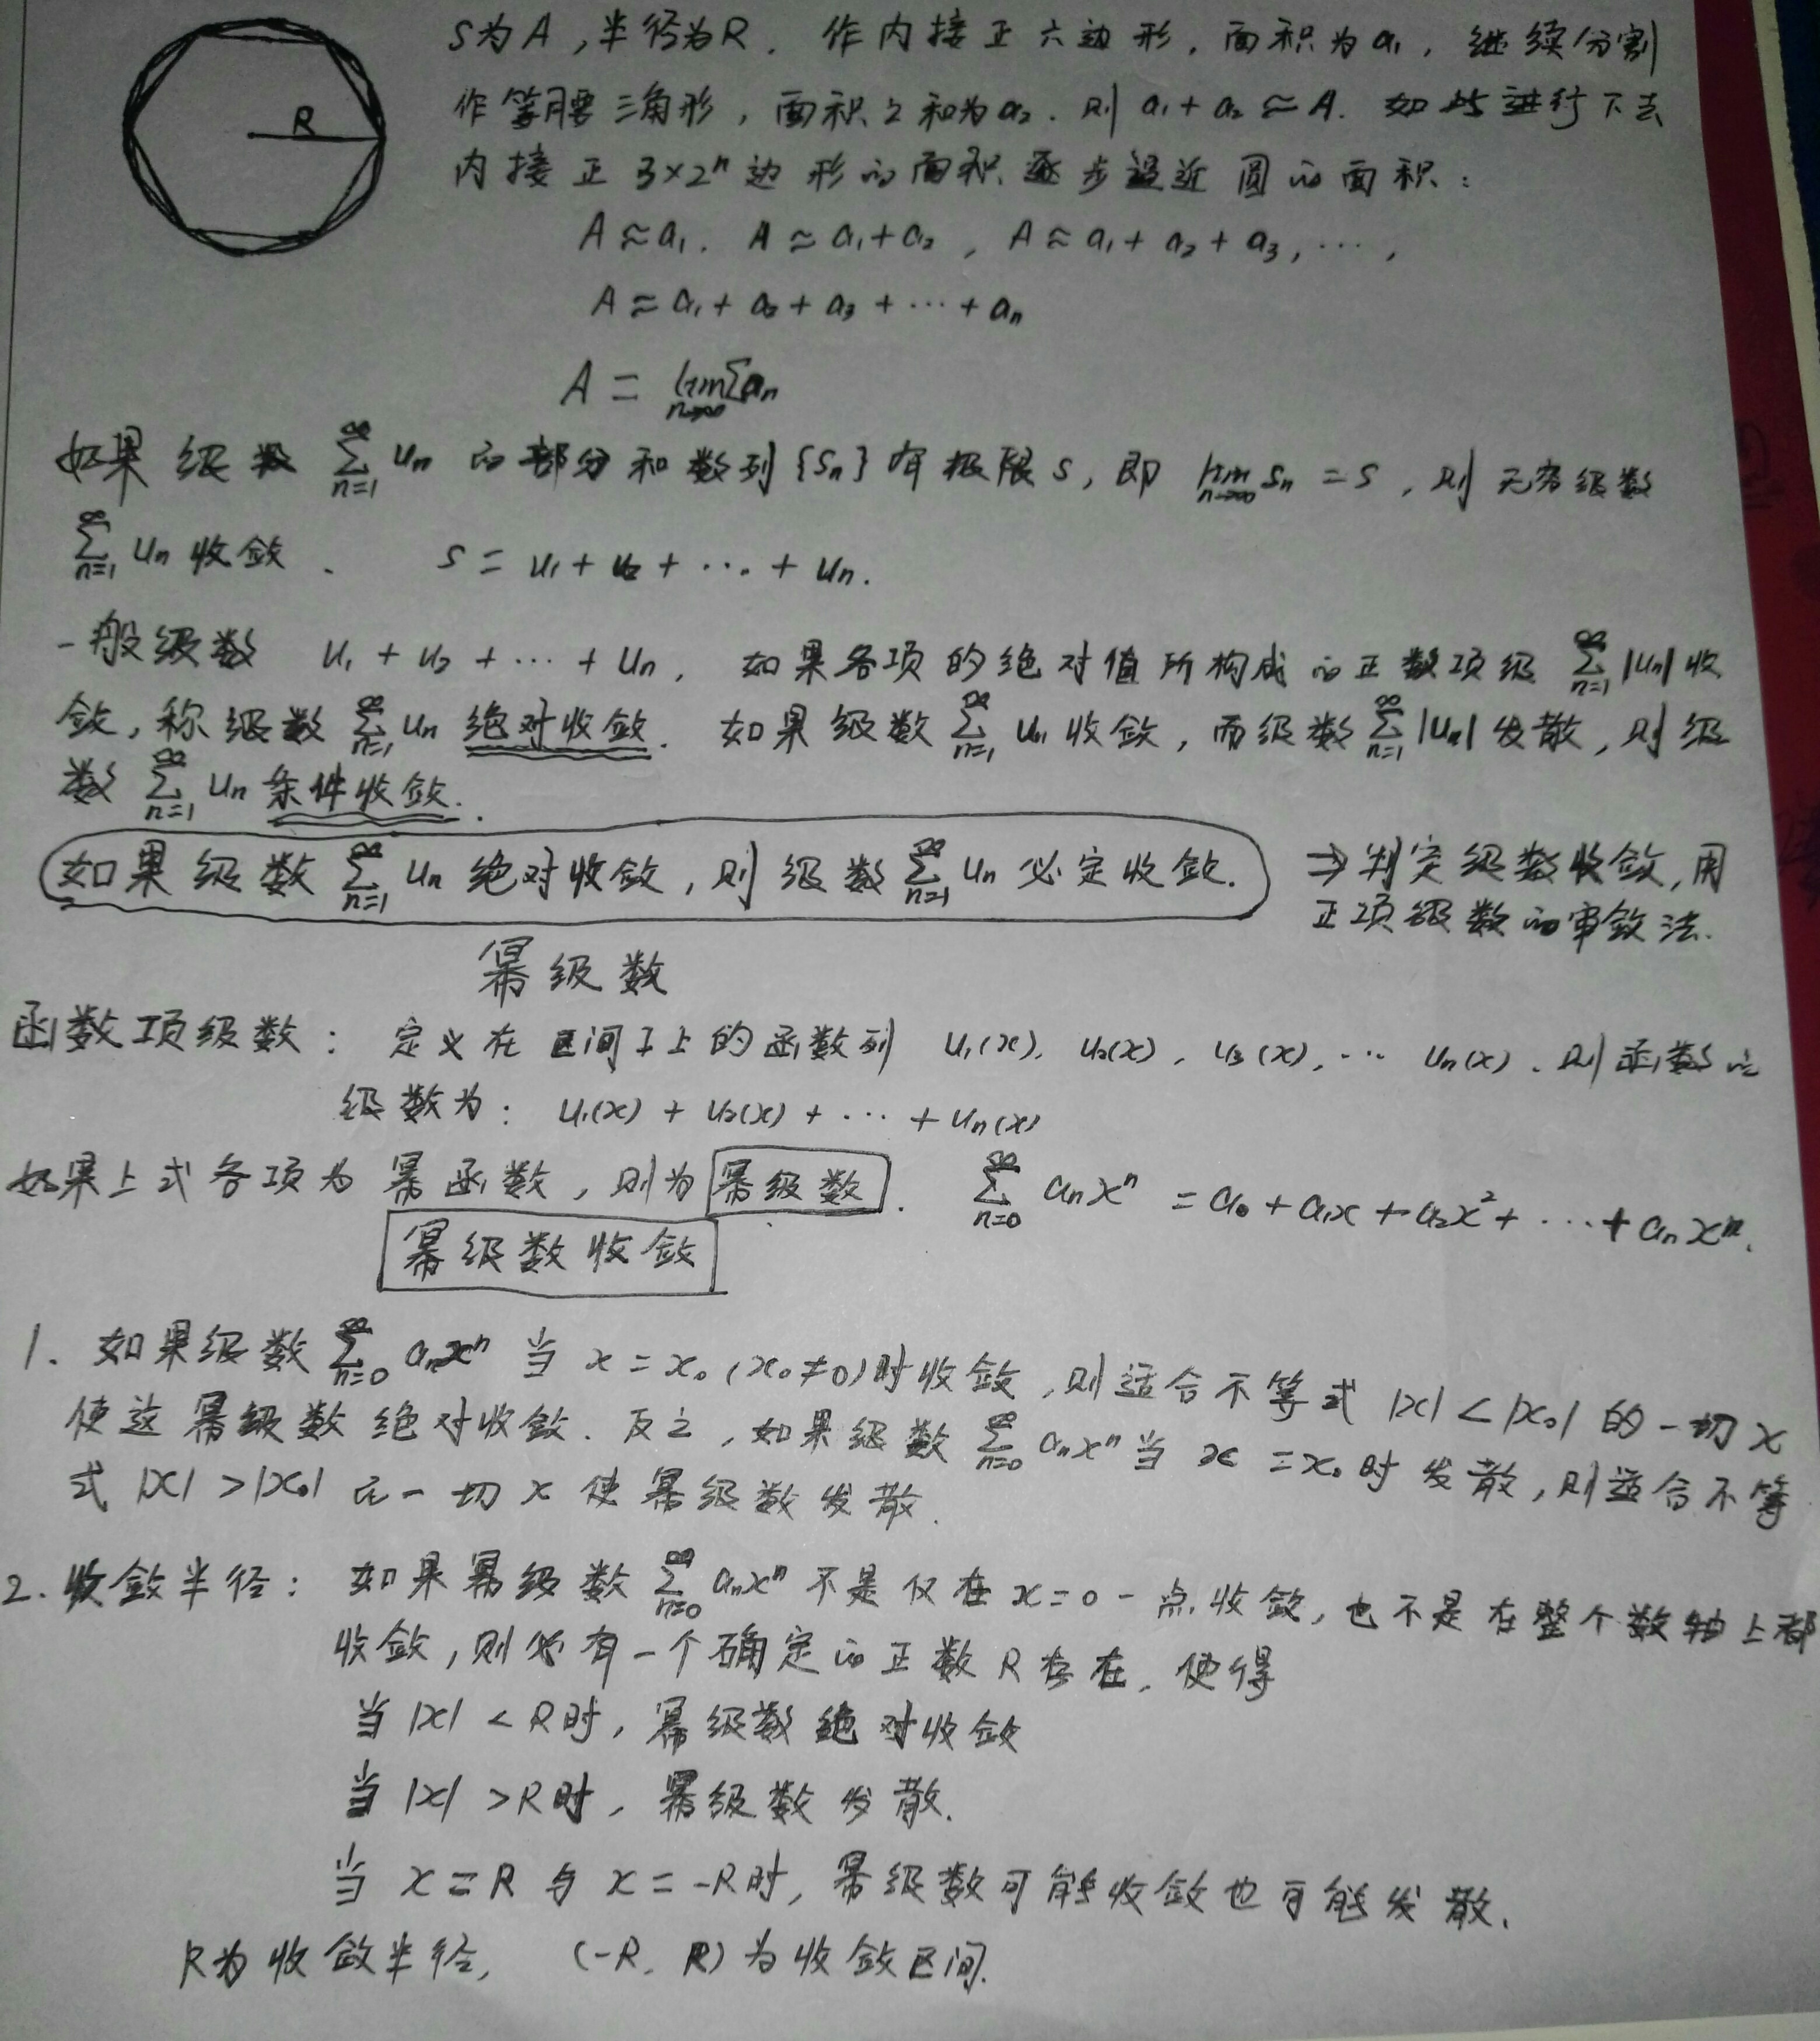 S为A,半径为R. 作内接正六边形,面积为a₁,继续分割
R
作等腰三角形,面积之和为a₂.则 a₁+a₂≈A. 如此进行下去
内接正3×2ⁿ边形的面积逐步逼近圆的面积:
A≈a₁. A≈a₁+a₂, A≈a₁+a₂+a₃,⋯,
A≈a₁+a₂+a₃+⋯+aₙ
A = lim_{n→∞} Σaₙ
如果级数 ∑_{n=1}^{∞} uₙ 的部分和数列{Sₙ}有极限s,即 lim_{n→∞} Sₙ = S,则无穷级数
∑_{n=1}^{∞} uₙ 收敛. S = u₁+u₂+⋯+uₙ.
一般级数 u₁+u₂+⋯+uₙ, 如果各项的绝对值所构成的正数项级 ∑_{n=1}^{∞} |uₙ| 收
敛,称级数 ∑_{n=1}^{∞} uₙ 绝对收敛. 如果级数 ∑_{n=1}^{∞} uₙ 收敛,而级数 ∑_{n=1}^{∞} |uₙ| 发散,则级
数 ∑_{n=1}^{∞} uₙ 条件收敛.
如果级数 ∑_{n=1}^{∞} uₙ 绝对收敛,则级数 ∑_{n=1}^{∞} uₙ 必定收敛. ⇒判定级数收敛,用
正项级数的审敛法.
幂级数
函数项级数: 定义在区间I上的函数列 u₁(x), u₂(x), u₃(x),⋯ uₙ(x). 则函数的
级数为: u₁(x)+u₂(x)+⋯+uₙ(x)
如果上式各项为幂函数,则为幂级数. ∑_{n=0}^{∞} aₙxⁿ = a₀+a₁x+a₂x²+⋯+aₙxⁿ.
幂级数收敛
1. 如果级数 ∑_{n=0}^{∞} aₙxⁿ 当 x=x₀(x₀≠0)时收敛,则适合不等式 |x|<|x₀| 的一切x
使这幂级数绝对收敛. 反之,如果级数 ∑_{n=0}^{∞} aₙxⁿ 当 x=x₀时发散,则适合不等
式 |x|>|x₀| 的一切x使幂级数发散.
2. 收敛半径: 如果幂级数 ∑_{n=0}^{∞} aₙxⁿ 不是仅在x=0一点收敛,也不是在整个数轴上都
收敛,则必有一个确定的正数R存在,使得
当 |x|<R时,幂级数绝对收敛
当 |x|>R时,幂级数发散.
当 x=R 与 x=-R时,幂级数可能收敛也可能发散.
R为收敛半径, (-R, R)为收敛区间.